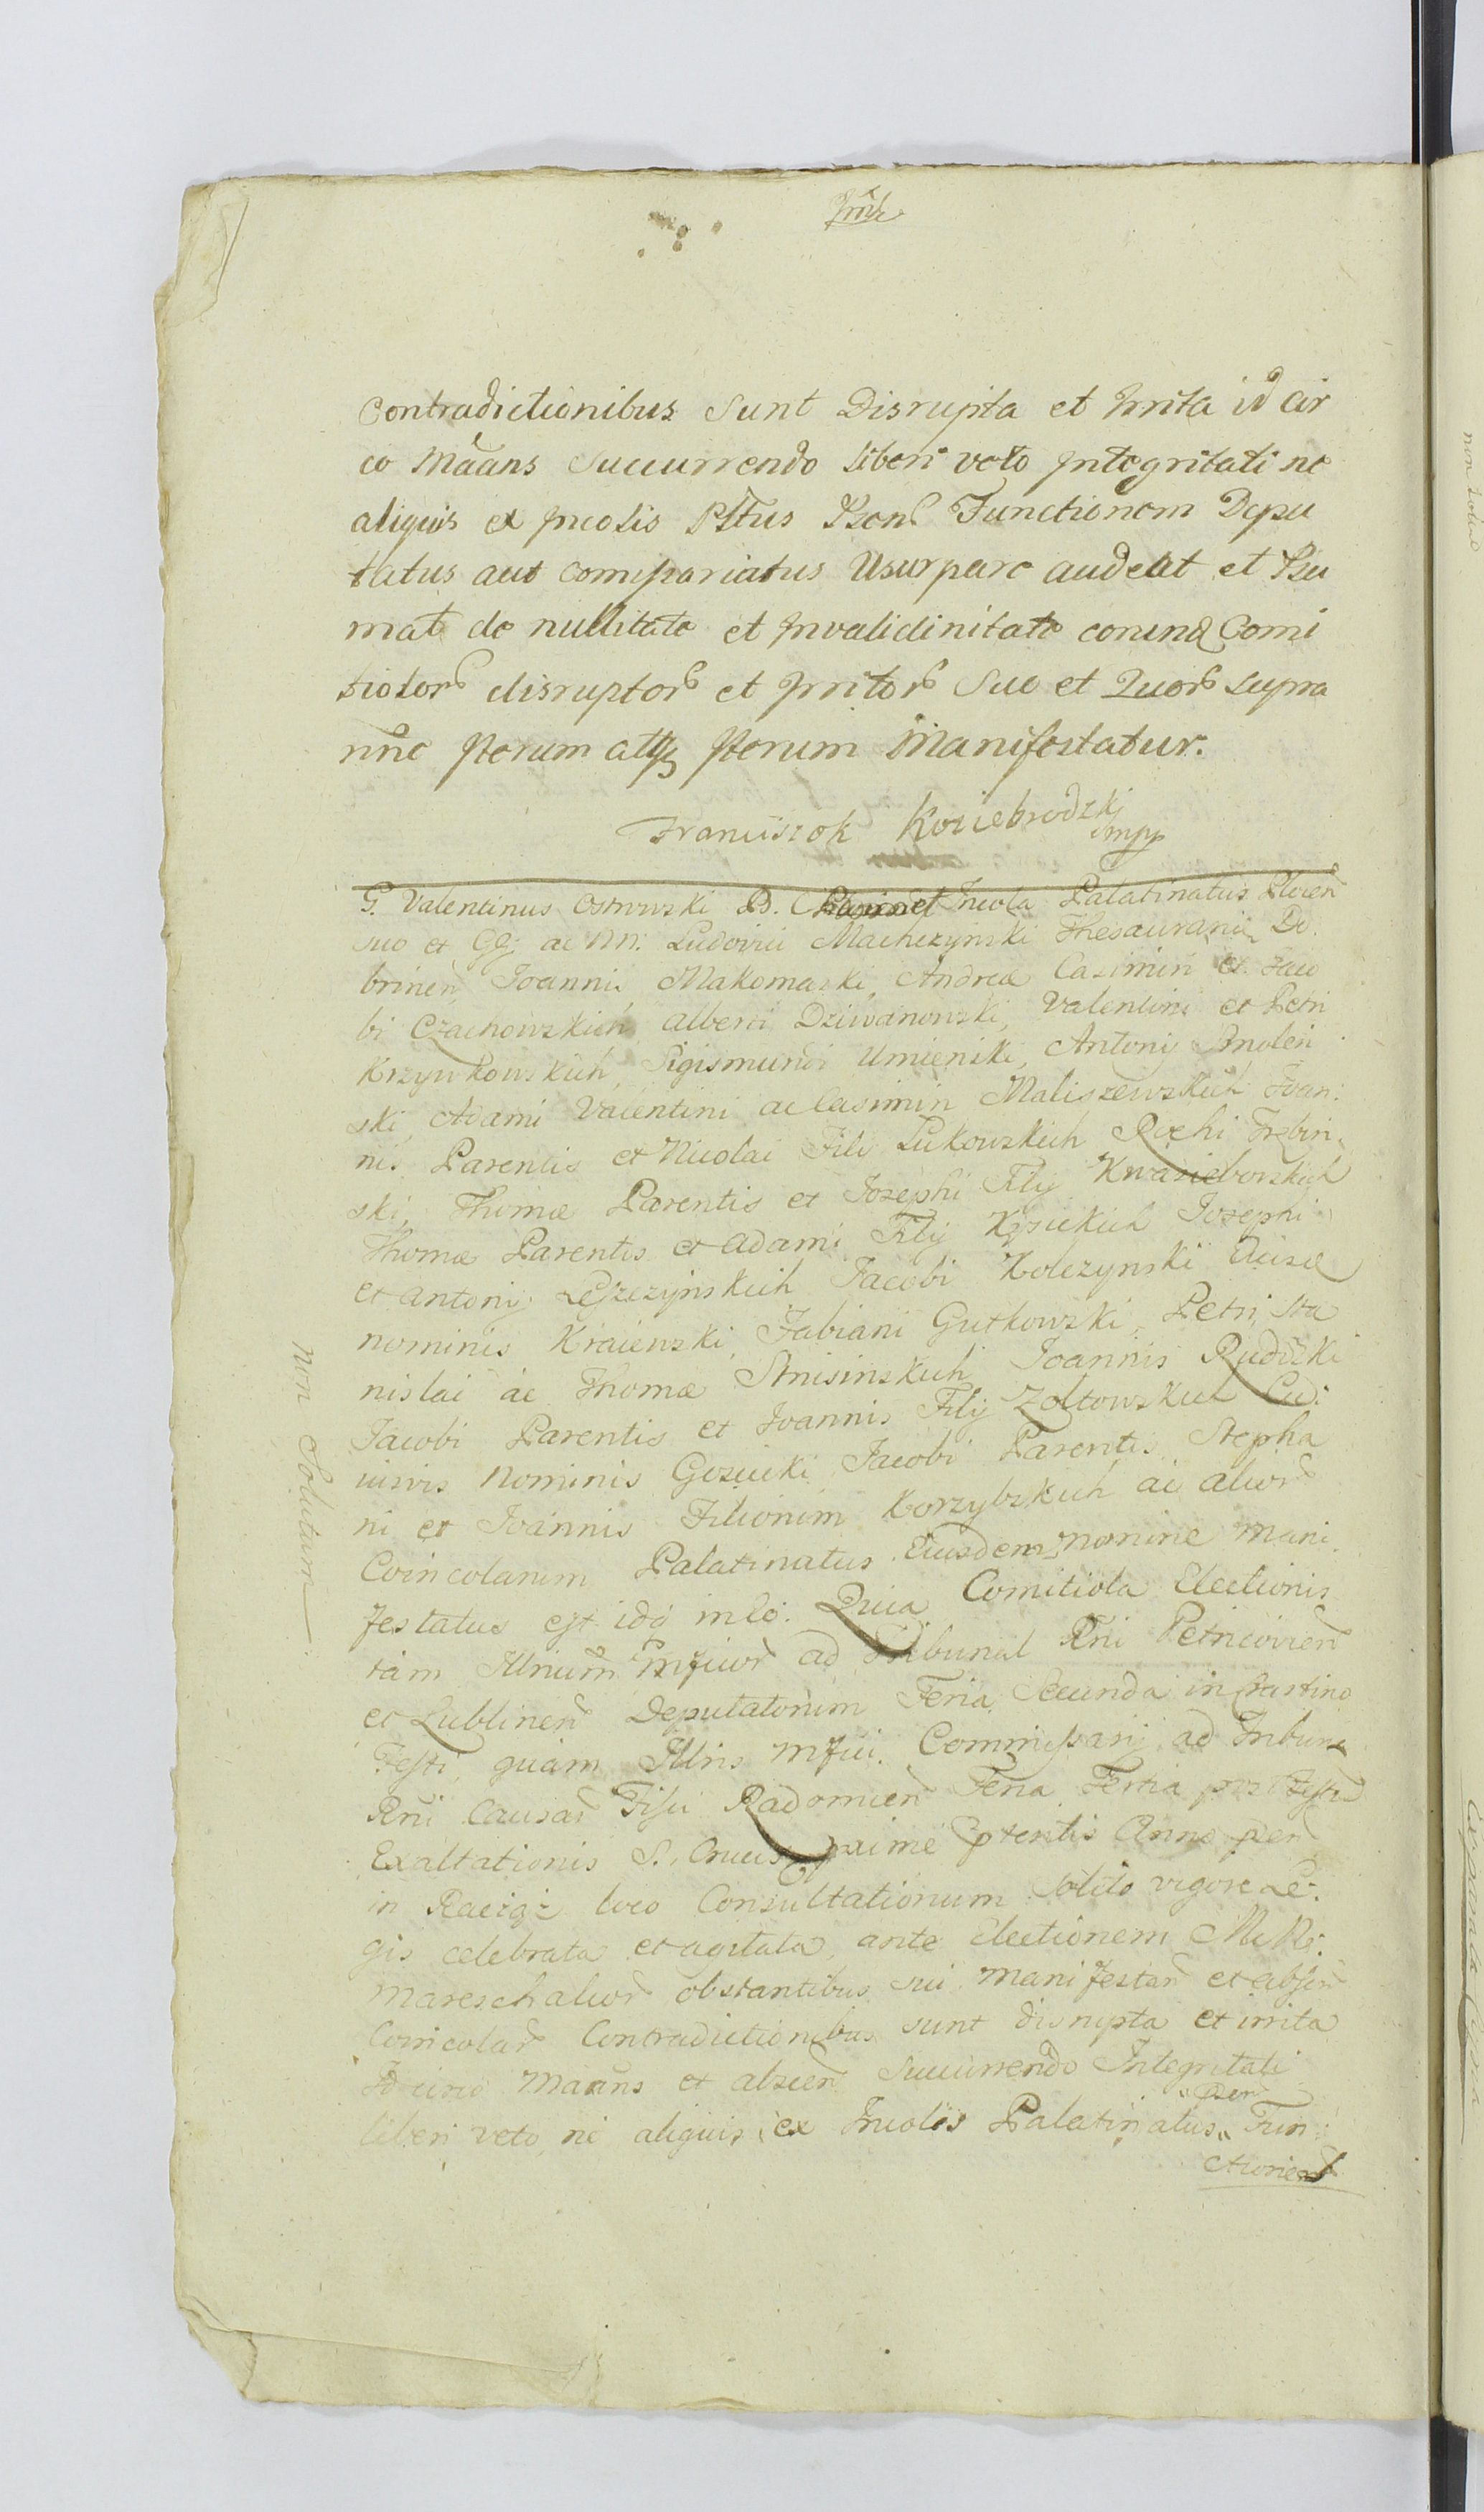 contradictionibus Sunt Disrupta et Irrita id cir
co Maans Succurrendo liberi veto Integritati ne
aliquis ex Incolis Pltus Functionem Depu
tatus aut Comissariatus Usurpare audeat et
mat de nullitate et Invalidinitate Comi
tiolor disruptor et Irritor Suo et Quor supra
nne Iterum atq Iterum Manifestatur.
Franciszek Koziebrodzki
mpp
G. Valentinus Ostrowski B. C. Incola Palatinatus Plocen
suo et GG: ac NN: Ludovici Machczynski Thesaurarii Do
brinen, Joannis Makomaski, Andrea Casimiri et Jaco
bi Czachowskich, Alberti Dziwanowski, Valentini et Petri
Krzywkowskich, Sigismundi Umienski, Antonij Smolen
ski, Adami Valentini ac Casimiri Maliszewskich Joan:
nis Parentis et Nicolai Fili Lukowskich Rochi Trzbin
ski, Thomæ Parentis et Josephi Filij Kwasieborskich
Thomæ Parentis et Adami Filij Kęsickich Josephi
et Antonij Leszczynskich Jacobi Kolczynski Cuisvæ
nominis Kraiewski, Fabiani Gutkowski, Petri, Sta
nislai ac Thomæ Strusinskich Joannis Rudzki
Jacobi Parentis et Joannis Filij Zoltowskich Cu:
iusvis Nominis Gosicki Jacobi Parentis Stepha
ni et Joannis Filiorum Korzybskich ac alior
Coincolarum Palatinatus Eiusdem nomine mani
festatus est idq in eo: Quia Comitiola Electionis
tam Illrium Mficor ad Tribunal Rni Petricovien
et Lublinen Deputatorum Feria Secunda in Crastino
Festi, quam Illris Mfici Commissarij ad Tribunal
Rni Causar Fisci Radomien Feria Tertia post Festum
Exaltationis S. Crucis pxime ptentis Anno pnti
in Raciąż loco Consultationum solito vigore Le:
gis celebrata et agitata, ante Electionem MM:
Mareschalcor obstantibus sui Manifestan et absen
Coincolar Contradictionibus sunt disrupta et irrita
Idcirco Maans et absen Succurrendo Integritati
liberi veto, ne aliquis ex Incolis Palatinatus Fun
ctionem
non Solutum